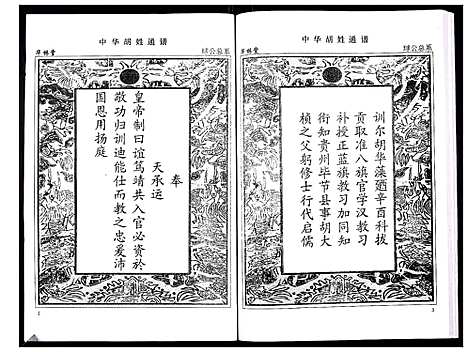 中华胡姓通谱
奉
天承运
皇帝制曰谊笃靖共入官必资於
敬功归训迪能仕而教之忠爱沛
国恩用扬庭
中华胡姓通谱
训尔胡华藻廼辛酉科拔
贡取准八旗官学汉教习
补授正蓝旗教习加同知
衔知贵州毕节县事胡大
桢之父躬修士行代启儒
3